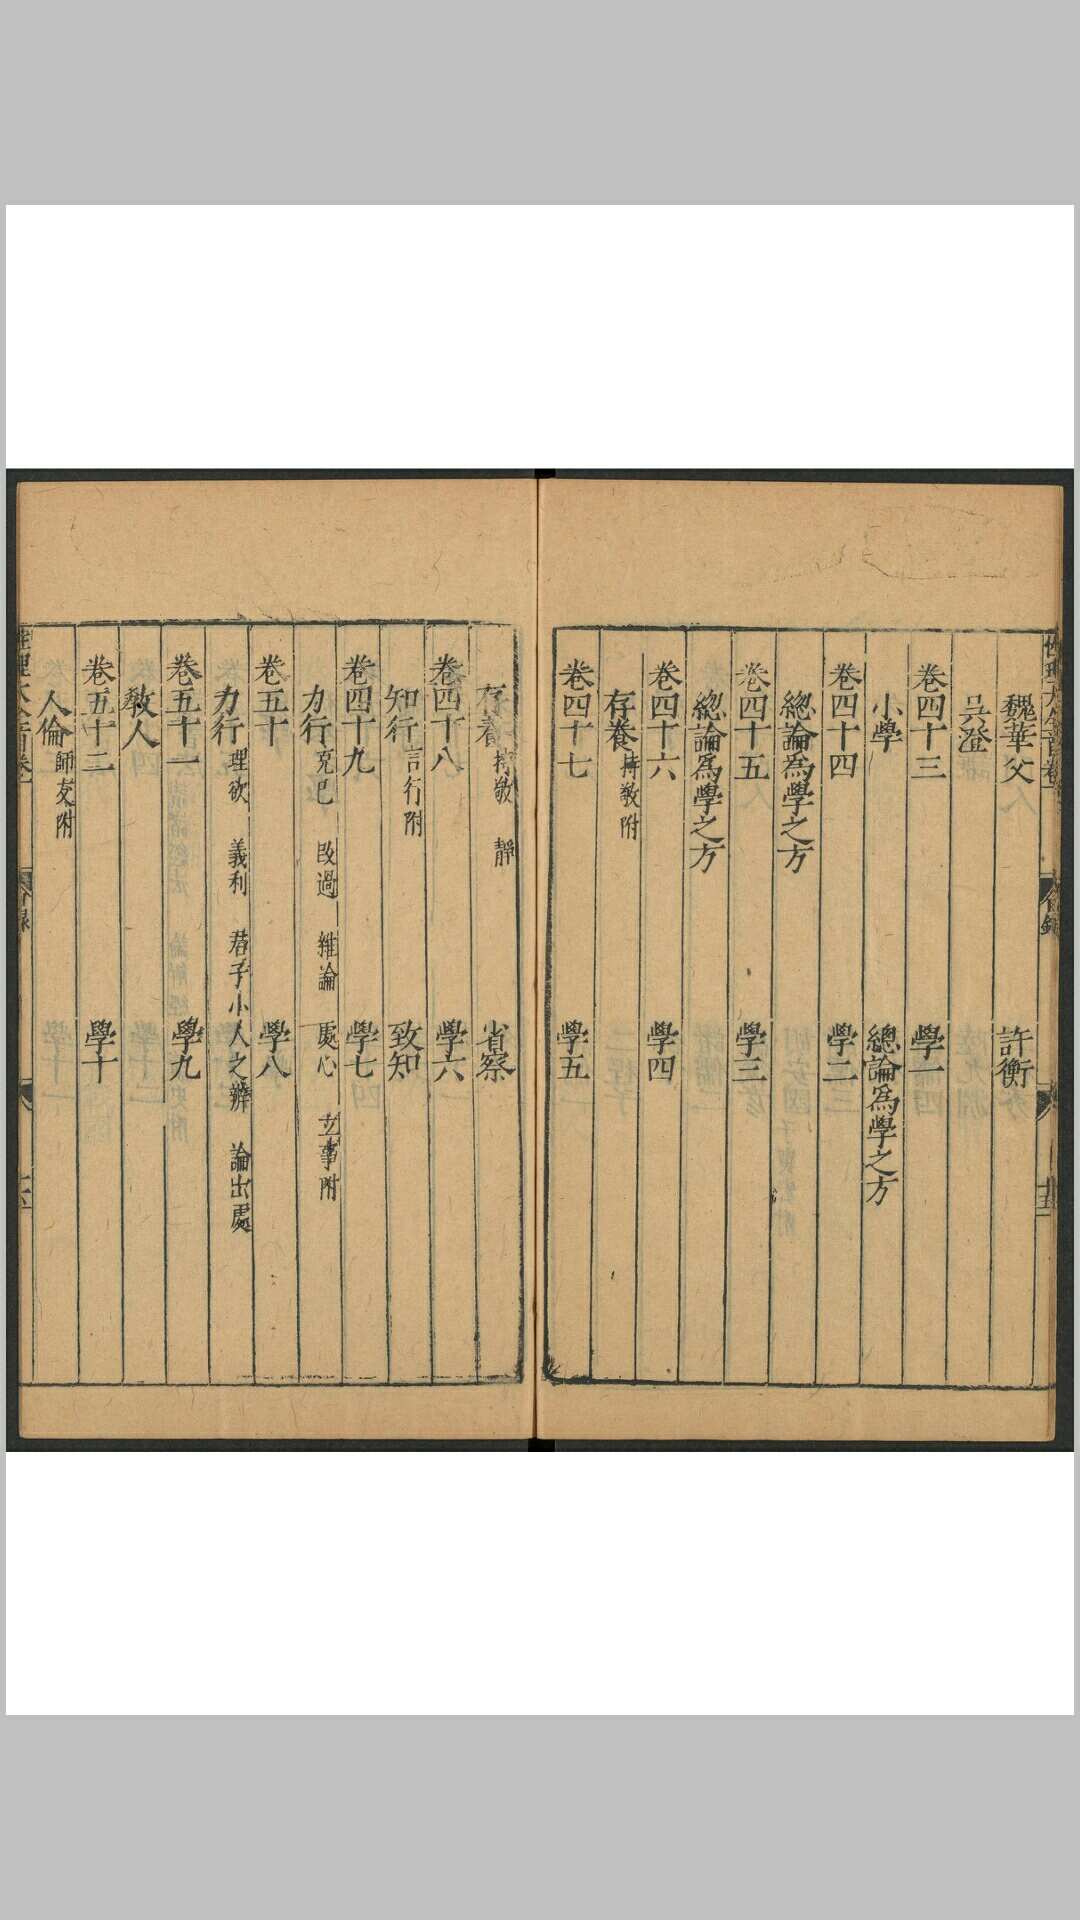 魏華父　許衡
吳澄
卷四十三　學一
小學　總論爲學之方
卷四十四　學二
總論爲學之方
卷四十五　學三
總論爲學之方
卷四十六　學四
存養持敬附
卷四十七　學五
存養持敬　靜　省察
卷四十八　學六
知行言行附　致知
卷四十九　學七
力行克己　改過　雜論　處心　立事附
卷五十　學八
力行理欲　義利　君子小人之辨　論出處
卷五十一　學九
敎人
卷五十二　學十
人倫師友附